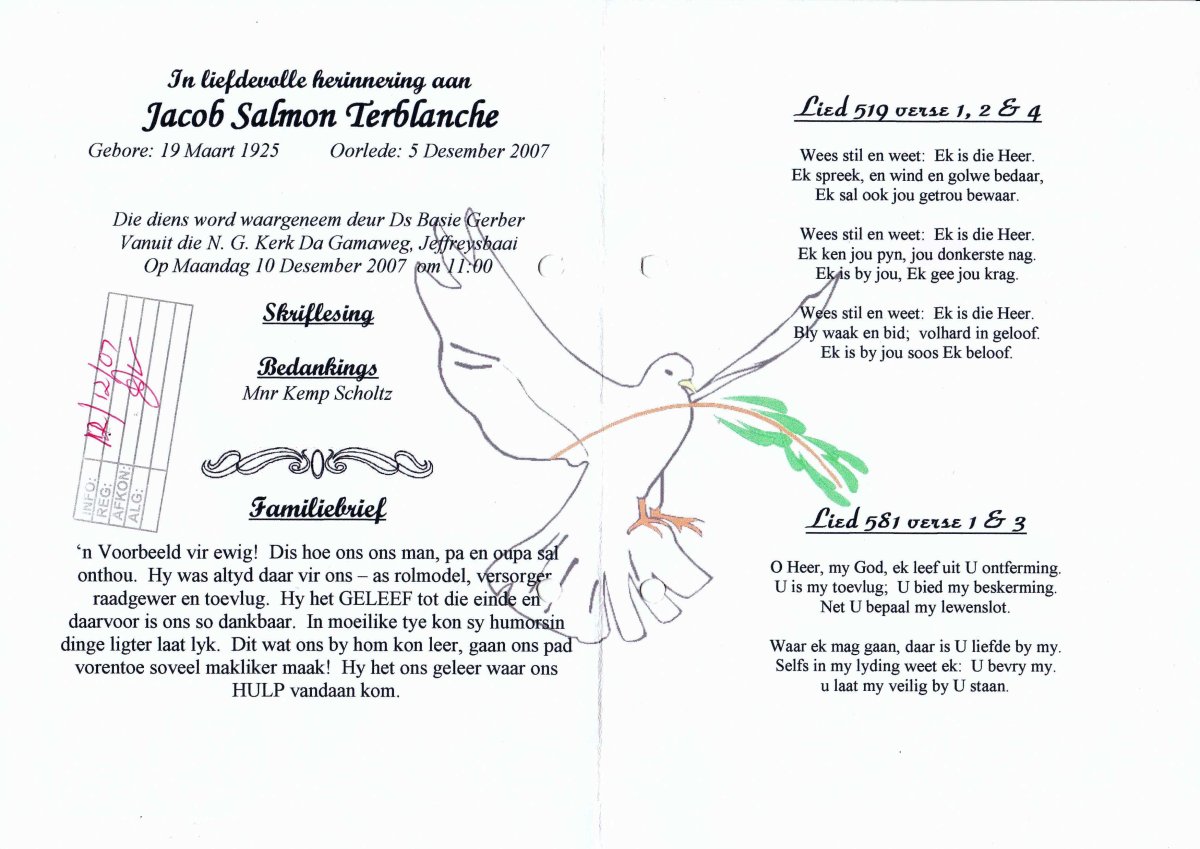 In liefdevolle herinnering aan
Jacob Salmon Terblanche
Gebore: 19 Maart 1925 Oorlede: 5 Desember 2007
Die diens word waargeneem deur Ds Basie Gerber
Vanuit die N. G. Kerk Da Gamaweg, Jeffreysbaai
Op Maandag 10 Desember 2007 om 11:00
Skriflesing
Bedankings
Mnr Kemp Scholtz
INFO:
REG: 12/12/07
AFKON:
ALG:
Familiebrief
‘n Voorbeeld vir ewig! Dis hoe ons ons man, pa en oupa sal
onthou. Hy was altyd daar vir ons – as rolmodel, versorger
raadgewer en toevlug. Hy het GELEEF tot die einde en
daarvoor is ons so dankbaar. In moeilike tye kon sy humorsin
dinge ligter laat lyk. Dit wat ons by hom kon leer, gaan ons pad
vorentoe soveel makliker maak! Hy het ons geleer waar ons
HULP vandaan kom.
Lied 519 verse 1, 2 & 4
Wees stil en weet: Ek is die Heer.
Ek spreek, en wind en golwe bedaar,
Ek sal ook jou getrou bewaar.
Wees stil en weet: Ek is die Heer.
Ek ken jou pyn, jou donkerste nag.
Ek is by jou, Ek gee jou krag.
Wees stil en weet: Ek is die Heer.
Bly waak en bid; volhard in geloof.
Ek is by jou soos Ek beloof.
Lied 581 verse 1 & 3
O Heer, my God, ek leef uit U ontferming.
U is my toevlug; U bied my beskerming.
Net U bepaal my lewenslot.
Waar ek mag gaan, daar is U liefde by my.
Selfs in my lyding weet ek: U bevry my.
u laat my veilig by U staan.